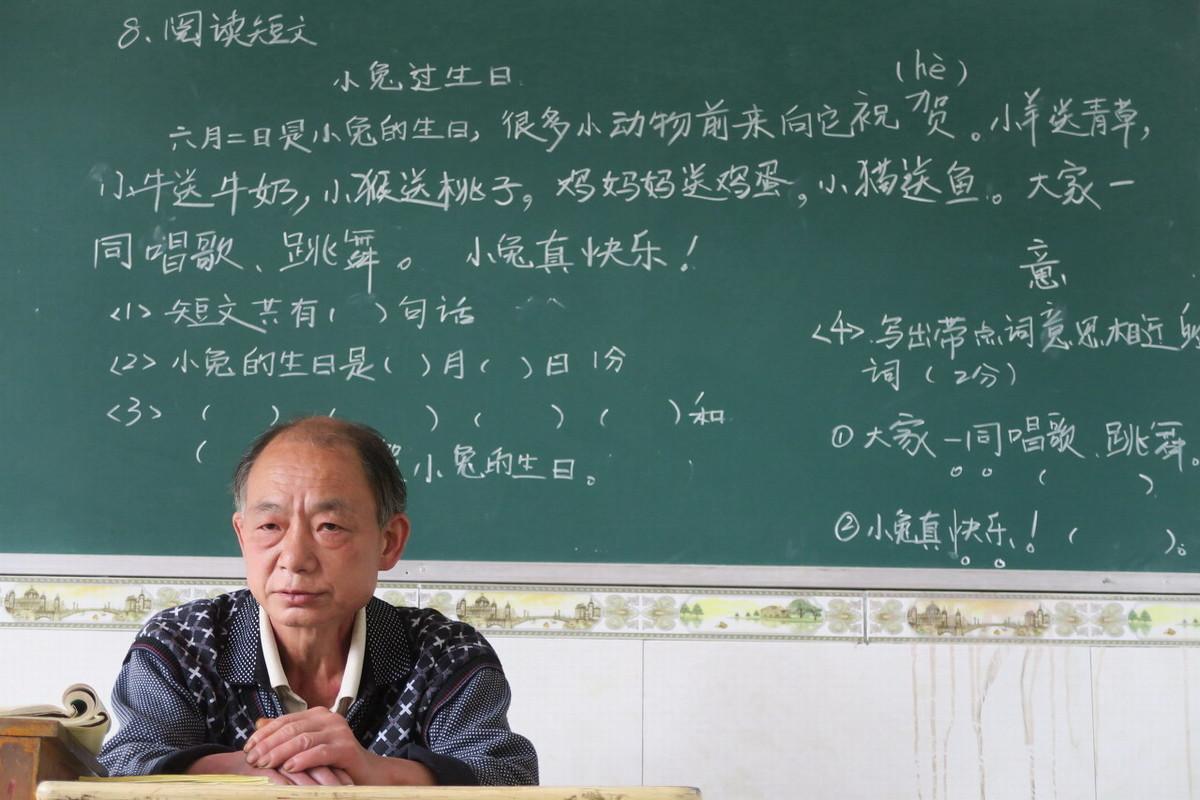 8、阅读短文
小兔过生日
(hè)
六月二日是小兔的生日,很多小动物前来向它祝贺。小羊送青草,
小牛送牛奶,小猴送桃子,鸡妈妈送鸡蛋,小猫送鱼。大家一
同唱歌、跳舞。小兔真快乐!
意
<1>短文共有( )句话
<2>小兔的生日是( )月( )日 1分
<3>( ) ( ) ( ) ( )和
( 小兔的生日。
<4>.写出带点词意思相近的
词(2分)
①大家一同唱歌、跳舞。
( )
②小兔真快乐!( )。